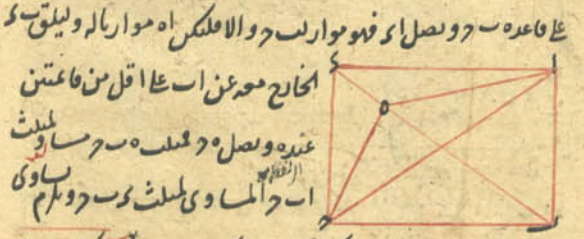 على قاعدة ب ح ونصل ا ء فهو مواز لب ح والا فليكن ا ه موازيا له وليلق ب ء
الخارج معه عن ا ب على اقل من قائمتين
عنده ونصل ه ح فمثلث ه ب ح مساو لمثلث
ا ب ح المساوى لمثلث ء ب ح ويلزم تساوى
ا
ء
ه
ب
ح